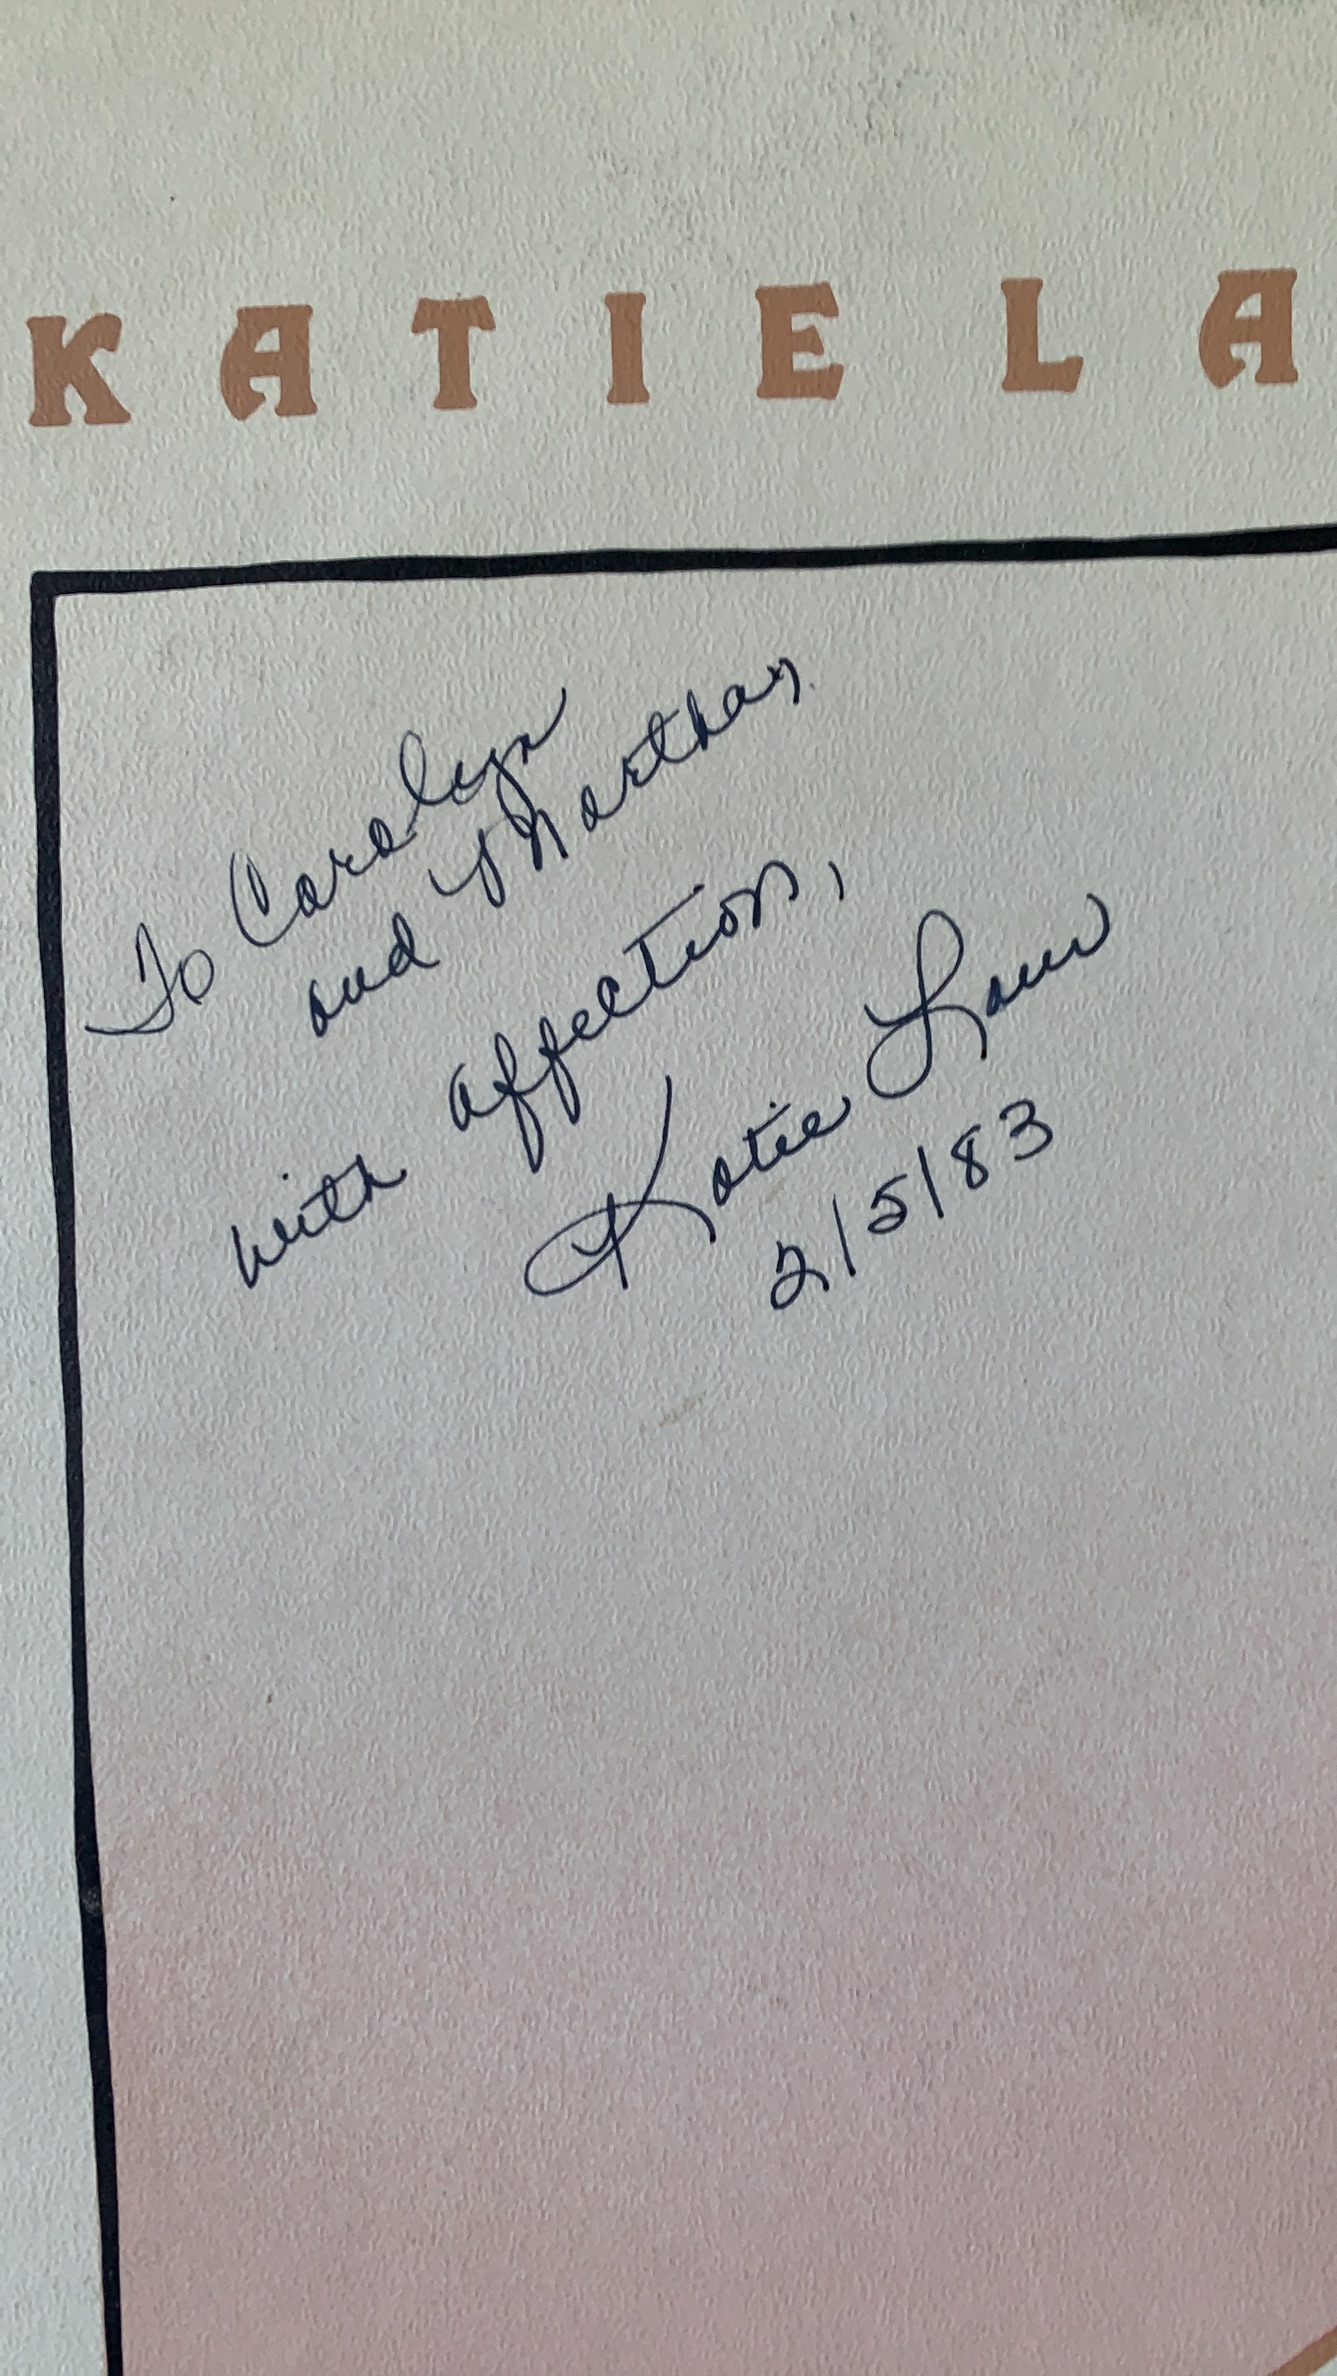 KATIE LA
To Carolyn
and Martha,
with affection,
Katie Laur
2/5/83